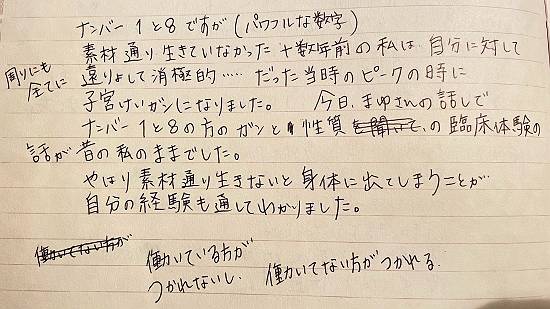 ナンバー1と8ですが(パワフルな数字)
素材通り生きていなかった十数年前の私は、自分に対して
周りにも
全てに
遠りょして消極的……だった当時のピークの時に
子宮けいガンになりました。 今日、まゆさんの話しで
ナンバー1と8の方のガンと性質の臨床体験の
話が昔の私のままでした。
やはり素材通り生きないと身体に出てしまうことが
自分の経験も通してわかりました。
働いてない方が
働いている方が
つかれないし、働いてない方がつかれる。